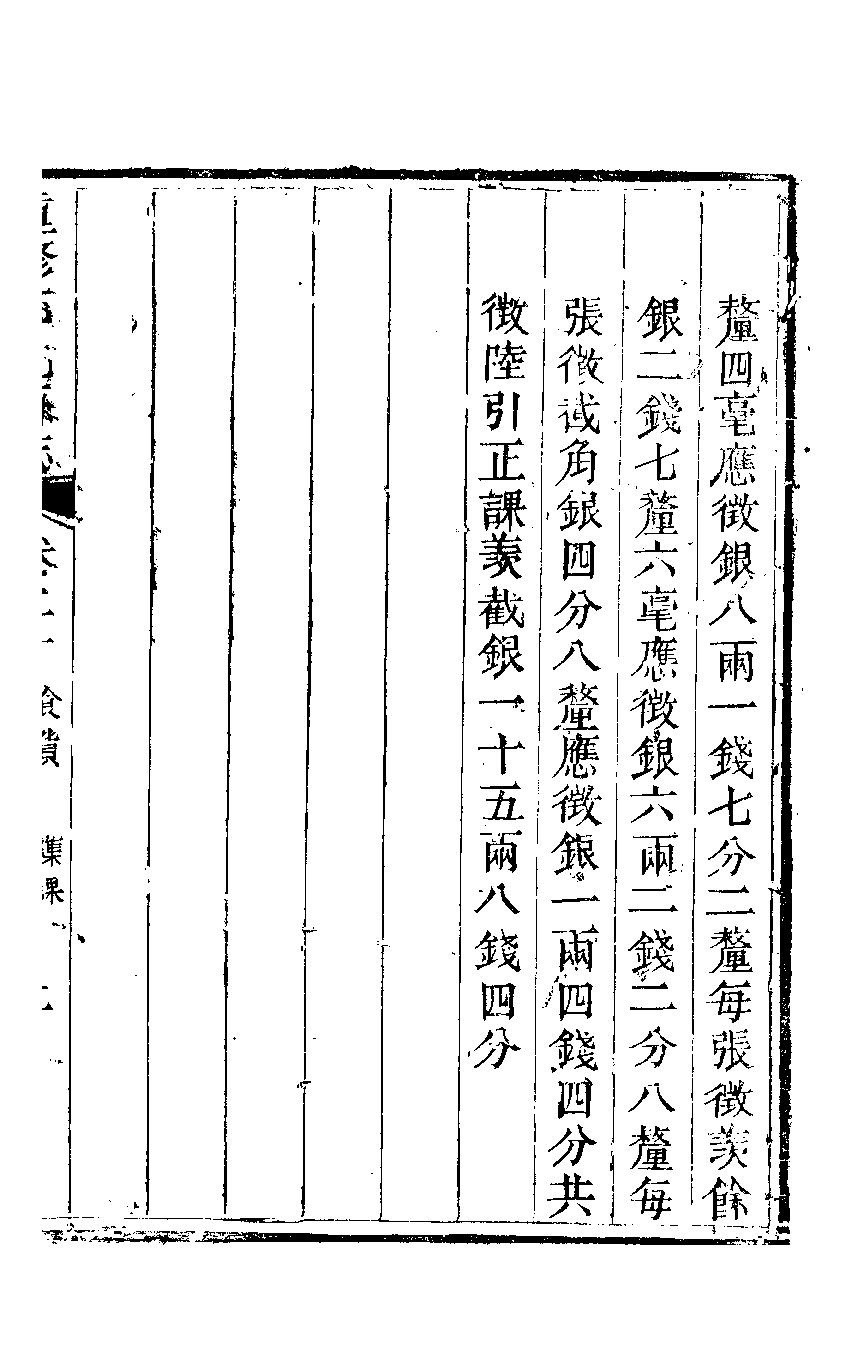 釐四毫應徴銀八兩一錢七分二釐每張徴羡餘
銀二錢七釐六毫應徴銀六兩二錢二分八釐每
張徴截角銀四分八釐應徴銀一兩四錢四分共
徴陸引正課羡截銀一十五兩八錢四分
重修
食貨
課